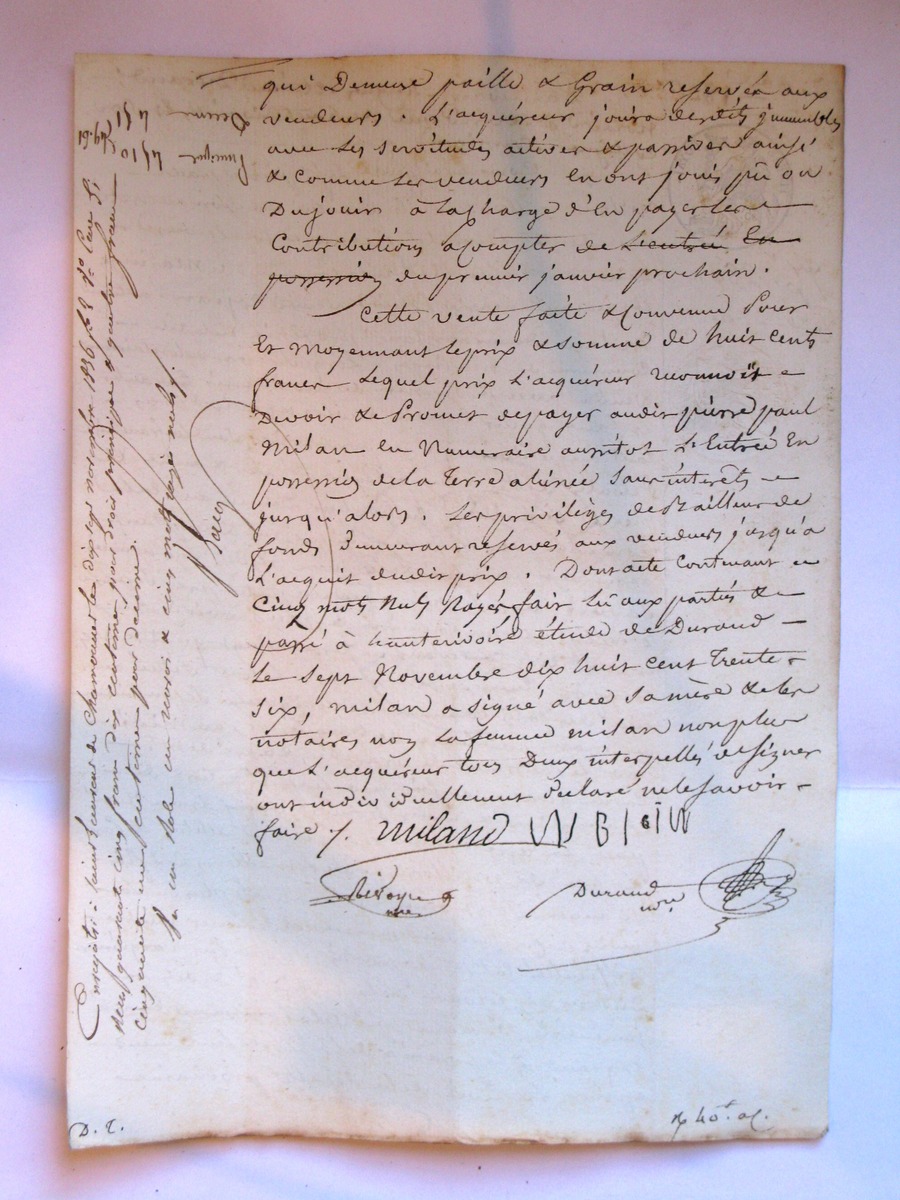 qui Demeure paille & Grain reservés aux
vendeurs. L'acquéreur jouira desdits immeubles
avec les servitudes actives & passives ainsi
& comme les vendeurs en ont joui pû ou
Du jouir à la charge d'en payer les
Contributions à Compter de L'entrée En
possession du premier janvier prochain.
Cette vente faite & Convenue Pour
Et Moyennant le prix & somme de huit cents
francs Lequel prix L'acquéreur reconnoit
Devoir & Promet de payer audit pierre paul
Milan en Numeraire aussitot L'Entrée En
possession de la Terre aliénée Sans intérêts
jusqu'alors. Les privilèges de Bailleur de
fonds Demeurant reservés aux vendeurs jusqu'à
L'acquit dudit prix. Dont acte Contenant
Cinq mots Nuls Rayés fait lu aux parties &
passé à hauterivoire étude de Durand
Le Sept Novembre dix huit cent Trente
Six, Milan a signé avec sa mère & les
notaires non La femme milan non plus
que L'acquéreur tous Deux interpellés de signer
ont individuellement déclaré ne le savoir
faire /. miland
Durand
nre
nre
Enregistré à Saint Laurent de Chamousset le dix sept novembre 1836
Reçu quarante cinq francs dix centimes pour droit principal & quatre francs
cinquante un centimes pour décime.
un rôle un renvoi & cinq mots rayés nuls /.
Principal 45,10
Décime 4,51
49.61
D. T.